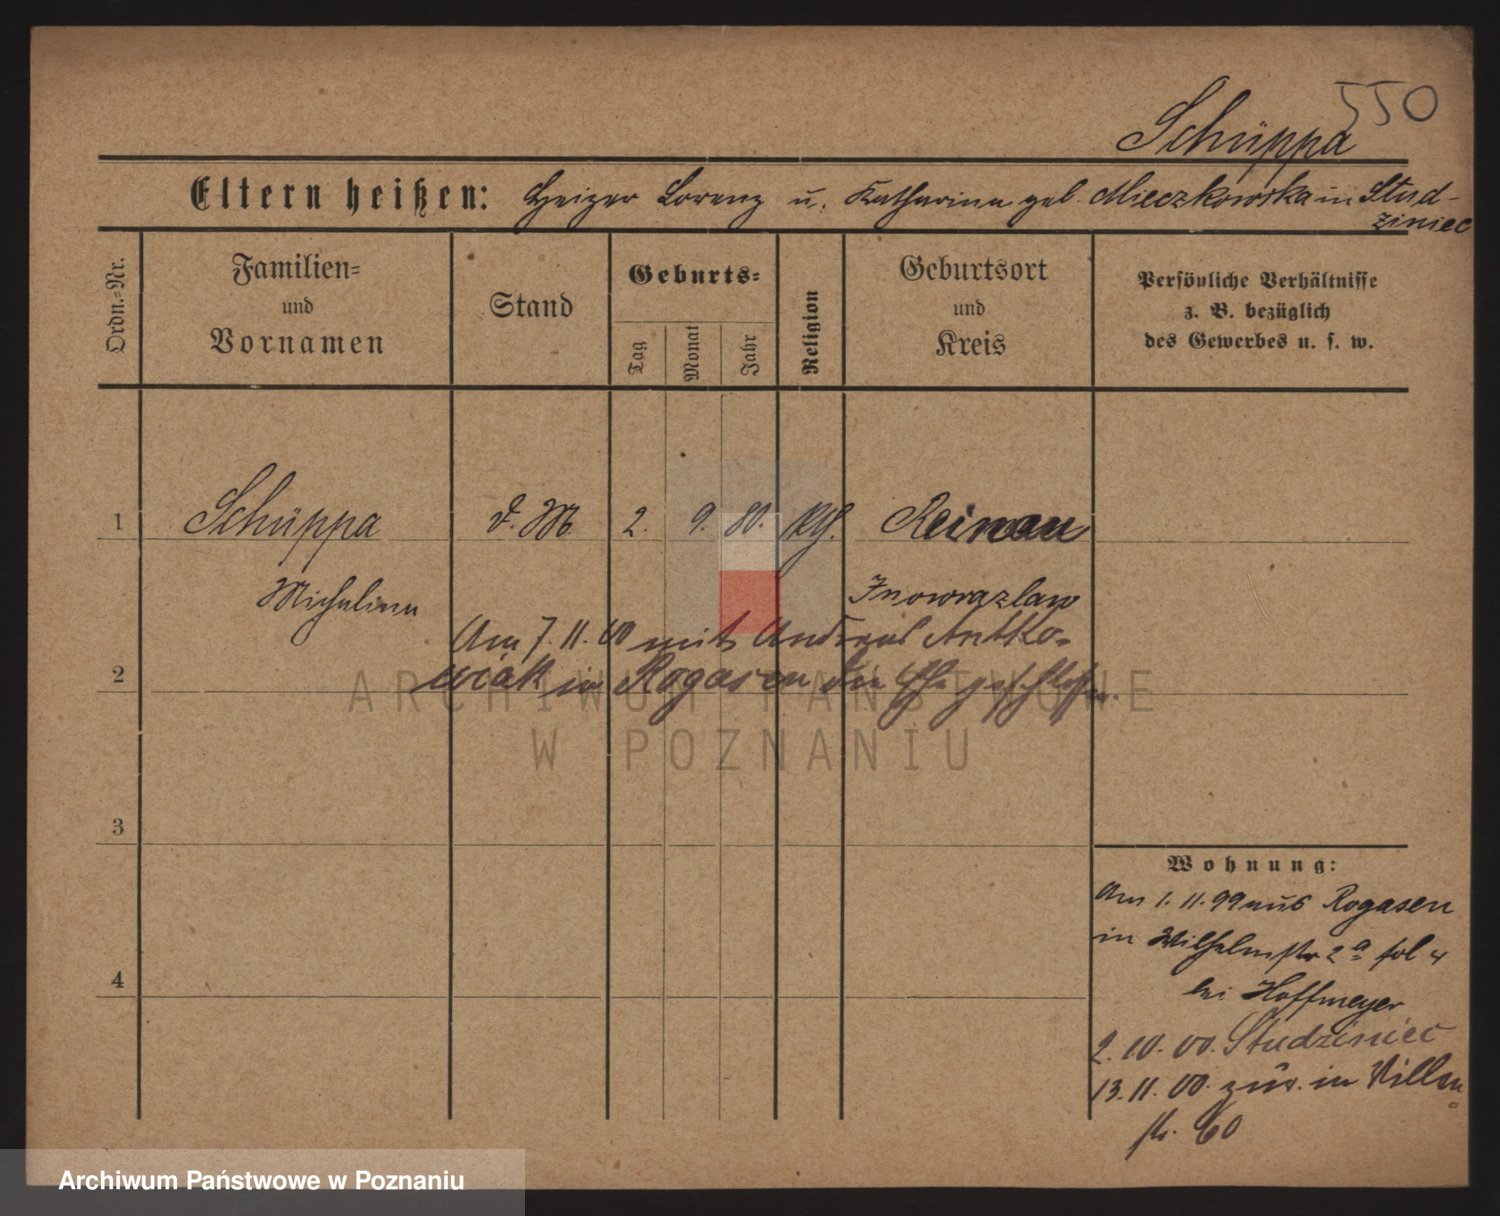 550
Schüppa
Eltern heißen: Heizer Lorenz u. Katharina geb. Mieczkowska in Stud-
ziniec
Ordn.-Nr.
Familien-
und
Vornamen
Stand
Geburts-
Tag
Monat
Jahr
Religion
Geburtsort
und
Kreis
Persönliche Verhältnisse
z. B. bezüglich
des Gewerbes u. s. w.
1 Schüppa d. M. 2. 9. 80. kth. Reinau
Michalina Inowrazlaw
Am 7.11.00 mit Andreas Antko-
2 wiak in Rogasen die Ehe geschlossen.
3
4
Wohnung:
Am 1.11.99 aus Rogasen
in Wilhelmstr 2a fol 4
bei Hoffmeyer
2.10.00. Studziniec
13.11.00. zur. in Villen-
str. 60
ARCHIWUM PAŃSTWOWE
W POZNANIU
Archiwum Państwowe w Poznaniu